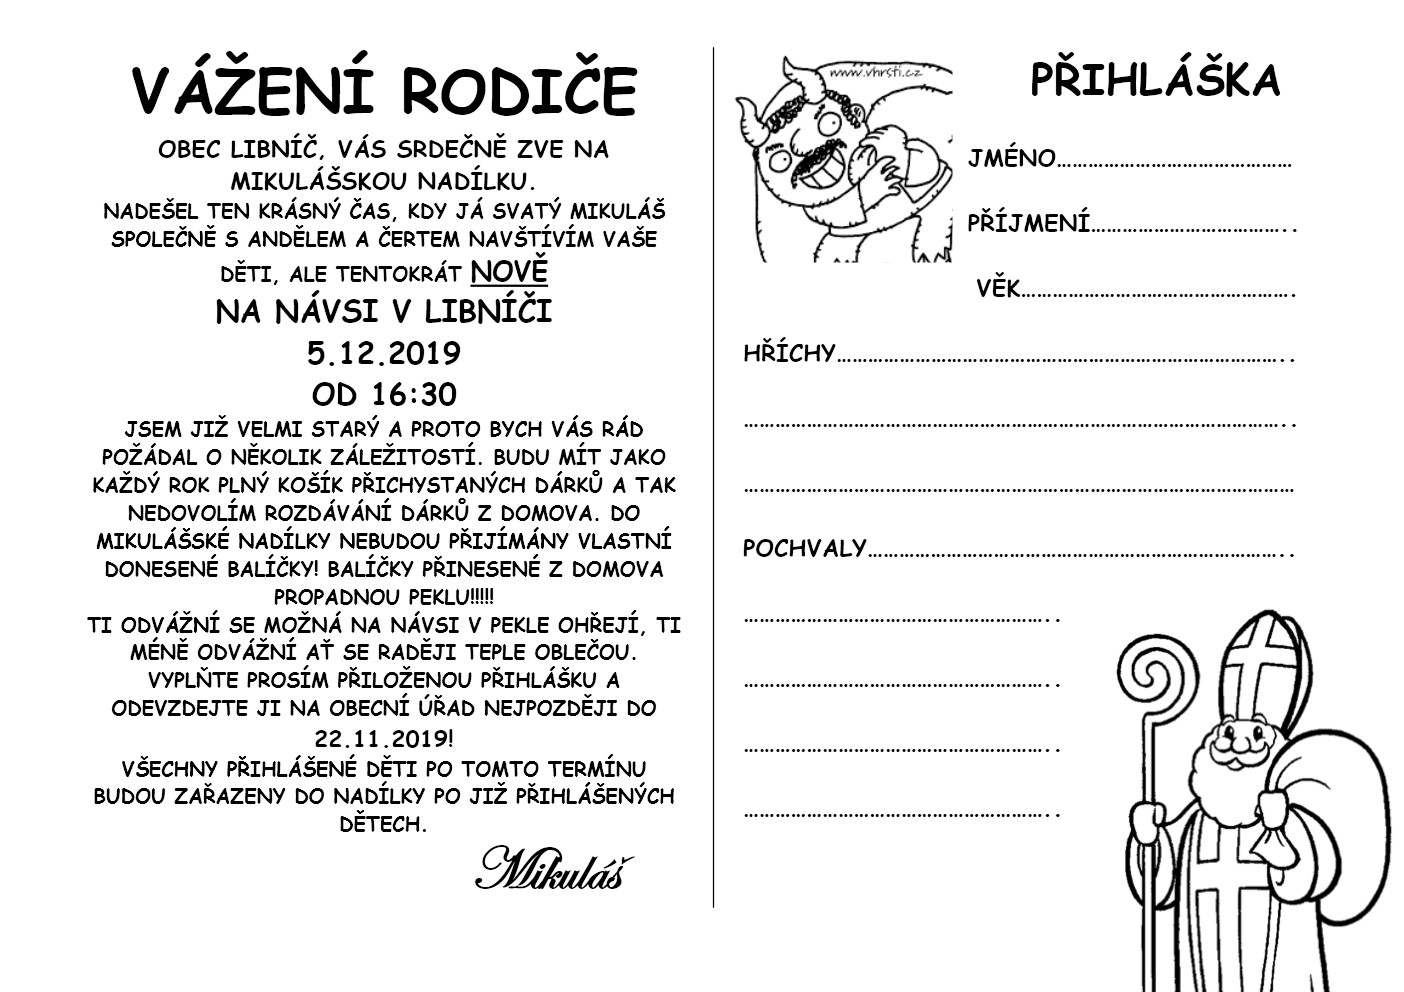 VÁŽENÍ RODIČE
OBEC LIBNÍČ, VÁS SRDEČNĚ ZVE NA
MIKULÁŠSKOU NADÍLKU.
NADEŠEL TEN KRÁSNÝ ČAS, KDY JÁ SVATÝ MIKULÁŠ
SPOLEČNĚ S ANDĚLEM A ČERTEM NAVŠTÍVÍM VAŠE
DĚTI, ALE TENTOKRÁT NOVĚ
NA NÁVSI V LIBNÍČI
5.12.2019
OD 16:30
JSEM JIŽ VELMI STARÝ A PROTO BYCH VÁS RÁD
POŽÁDAL O NĚKOLIK ZÁLEŽITOSTÍ. BUDU MÍT JAKO
KAŽDÝ ROK PLNÝ KOŠÍK PŘICHYSTANÝCH DÁRKŮ A TAK
NEDOVOLÍM ROZDÁVÁNÍ DÁRKŮ Z DOMOVA. DO
MIKULÁŠSKÉ NADÍLKY NEBUDOU PŘIJÍMÁNY VLASTNÍ
DONESENÉ BALÍČKY! BALÍČKY PŘINESENÉ Z DOMOVA
PROPADNOU PEKLU!!!!!
TI ODVÁŽNÍ SE MOŽNÁ NA NÁVSI V PEKLE OHŘEJÍ, TI
MÉNĚ ODVÁŽNÍ AŤ SE RADĚJI TEPLE OBLEČOU.
VYPLŇTE PROSÍM PŘILOŽENOU PŘIHLÁŠKU A
ODEVZDEJTE JI NA OBECNÍ ÚŘAD NEJPOZDĚJI DO
22.11.2019!
VŠECHNY PŘIHLÁŠENÉ DĚTI PO TOMTO TERMÍNU
BUDOU ZAŘAZENY DO NADÍLKY PO JIŽ PŘIHLÁŠENÝCH
DĚTECH.
Mikuláš
www.vhrsti.cz
PŘIHLÁŠKA
JMÉNO………………………………………
PŘÍJMENÍ………………………………..
VĚK…………………………………………….
HŘÍCHY…………………………………………………………………………..
……………………………………………………………………………………………..
………………………………………………………………………………………………
POCHVALY……………………………………………………………………..
…………………………………………………..
…………………………………………………..
…………………………………………………..
…………………………………………………..